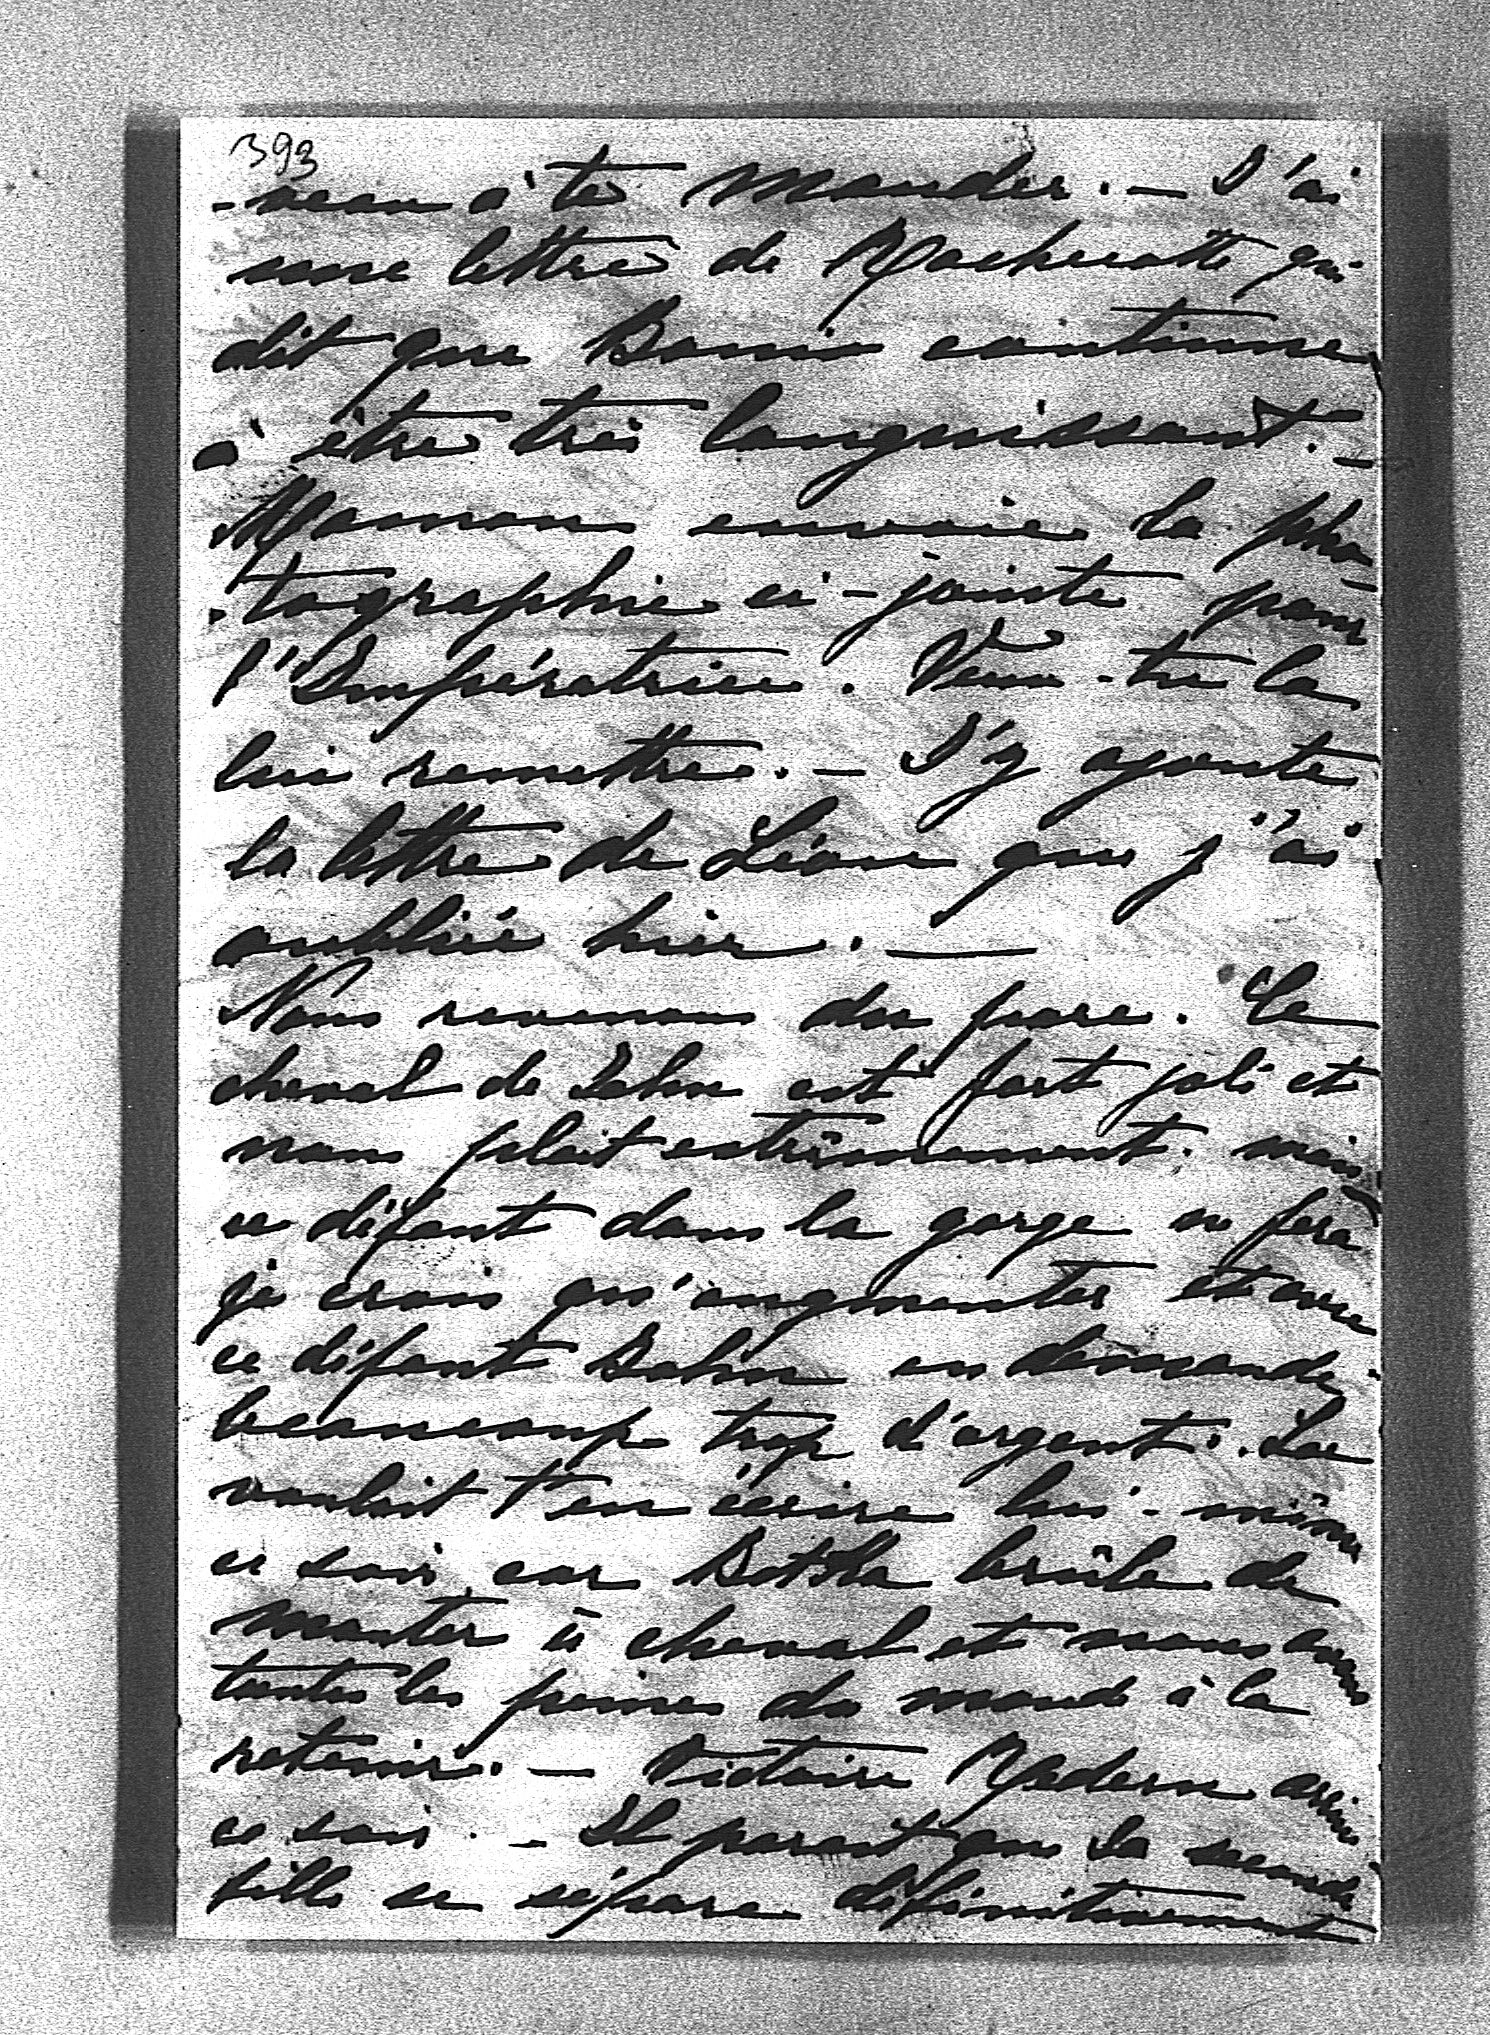 393
-veau à te mander. — J'ai
une lettre de qui
dit que continue
à être très languissant. —
Maman envoie la pho
-tographie ci-jointe pour
l'Impératrice. Veux-tu la
lui remettre. — J'y ajoute
la lettre de Léon que j'ai
oubliée hier. —
Nous revenons du parc. Le
cheval de est fort joli et
nous plait extrêmement. mais
ce défaut dans la gorge ne fera
je crois qu'augmenter et avec
ce défaut en demande
beaucoup trop d'argent.
voulait t'en écrire lui-même
ce soir, car brûle de
monter à cheval et nous avons
toutes les peines du monde à la
retenir. — Victoire arrive
ce soir. — Il parait que sa seconde
fille se sépare définitivement